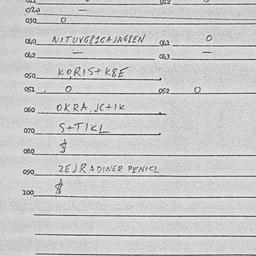 020 —
030 O
040 NITUVGPICAJNGPEN 041 O
042 — 043 —
050 KORIS+K8E
051 O 052 O
060 OKRA, JC+IK
070 S+TIKL
080 $
090 2EJRADINER PENICL
100 $